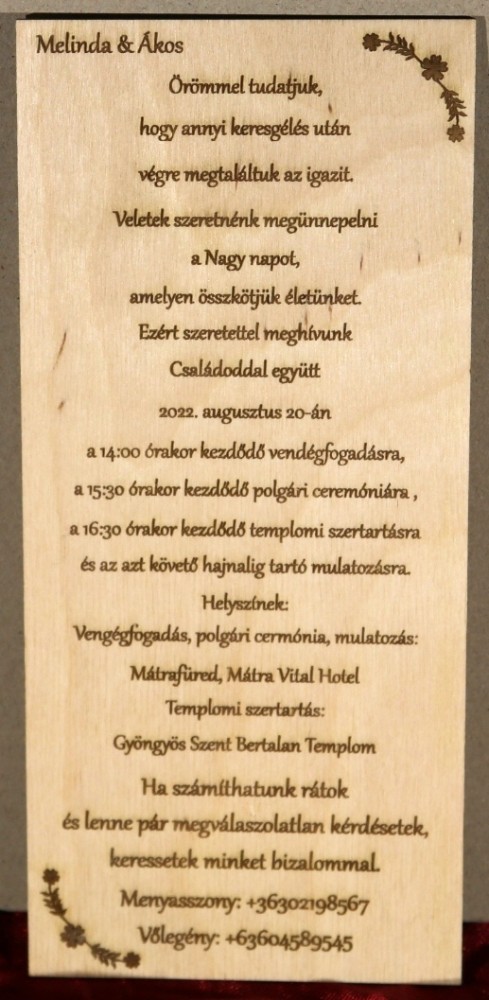 Melinda & Ákos
Örömmel tudatjuk,
hogy annyi keresgélés után
végre megtaláltuk az igazit.
Veletek szeretnénk megünnepelni
a Nagy napot,
amelyen összkötjük életünket.
Ezért szeretettel meghívunk
Családoddal együtt
2022. augusztus 20-án
a 14:00 órakor kezdődő vendégfogadásra,
a 15:30 órakor kezdődő polgári ceremóniára ,
a 16:30 órakor kezdődő templomi szertartásra
és az azt követő hajnalig tartó mulatozásra.
Helyszínek:
Vengégfogadás, polgári cermónia, mulatozás:
Mátrafüred, Mátra Vital Hotel
Templomi szertartás:
Gyöngyös Szent Bertalan Templom
Ha számíthatunk rátok
és lenne pár megválaszolatlan kérdésetek,
keressetek minket bizalommal.
Menyasszony: +36302198567
Vőlegény: +63604589545